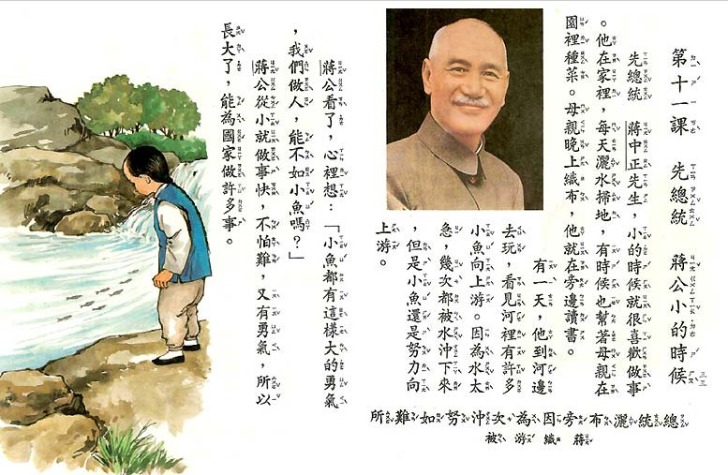 第十一課　先總統　蔣公小的時候
先總統　蔣中正先生，小的時候就很喜歡做事
。他在家裡，每天灑水掃地，有時候也幫著母親在
園裡種菜。母親晚上織布，他就在旁邊讀書。
有一天，他到河邊
去玩，看見河裡有許多
小魚向上游。因為水太
急，幾次都被水沖下來
，但是小魚還是努力向
上游。
蔣公看了，心裡想：「小魚都有這樣大的勇氣
，我們做人，能不如小魚嗎？」
蔣公從小就做事快，不怕難，又有勇氣，所以
長大了，能為國家做許多事。
總統灑布旁因為次沖努如難所
蔣織游被